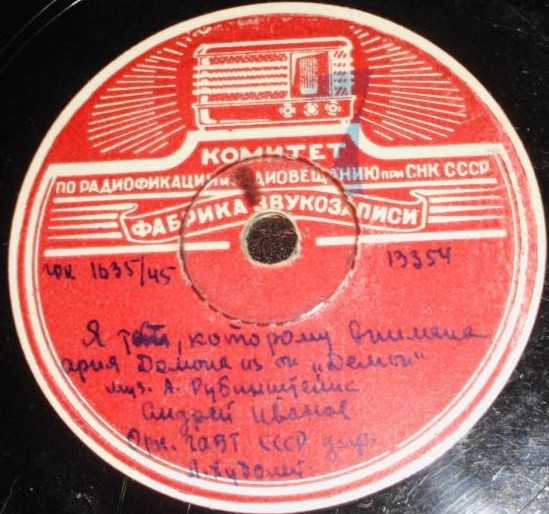 КОМИТЕТ
ПО РАДИОФИКАЦИИ И РАДИОВЕЩАНИЮ ПРИ СНК СССР
ФАБРИКА ЗВУКОЗАПИСИ
1635/45
13354
Я тот, которому внимала
ария Демона из оп "Демон"
муз. А. Рубинштейна
Андрей Иванов
Орк. ГАБТ СССР дир.